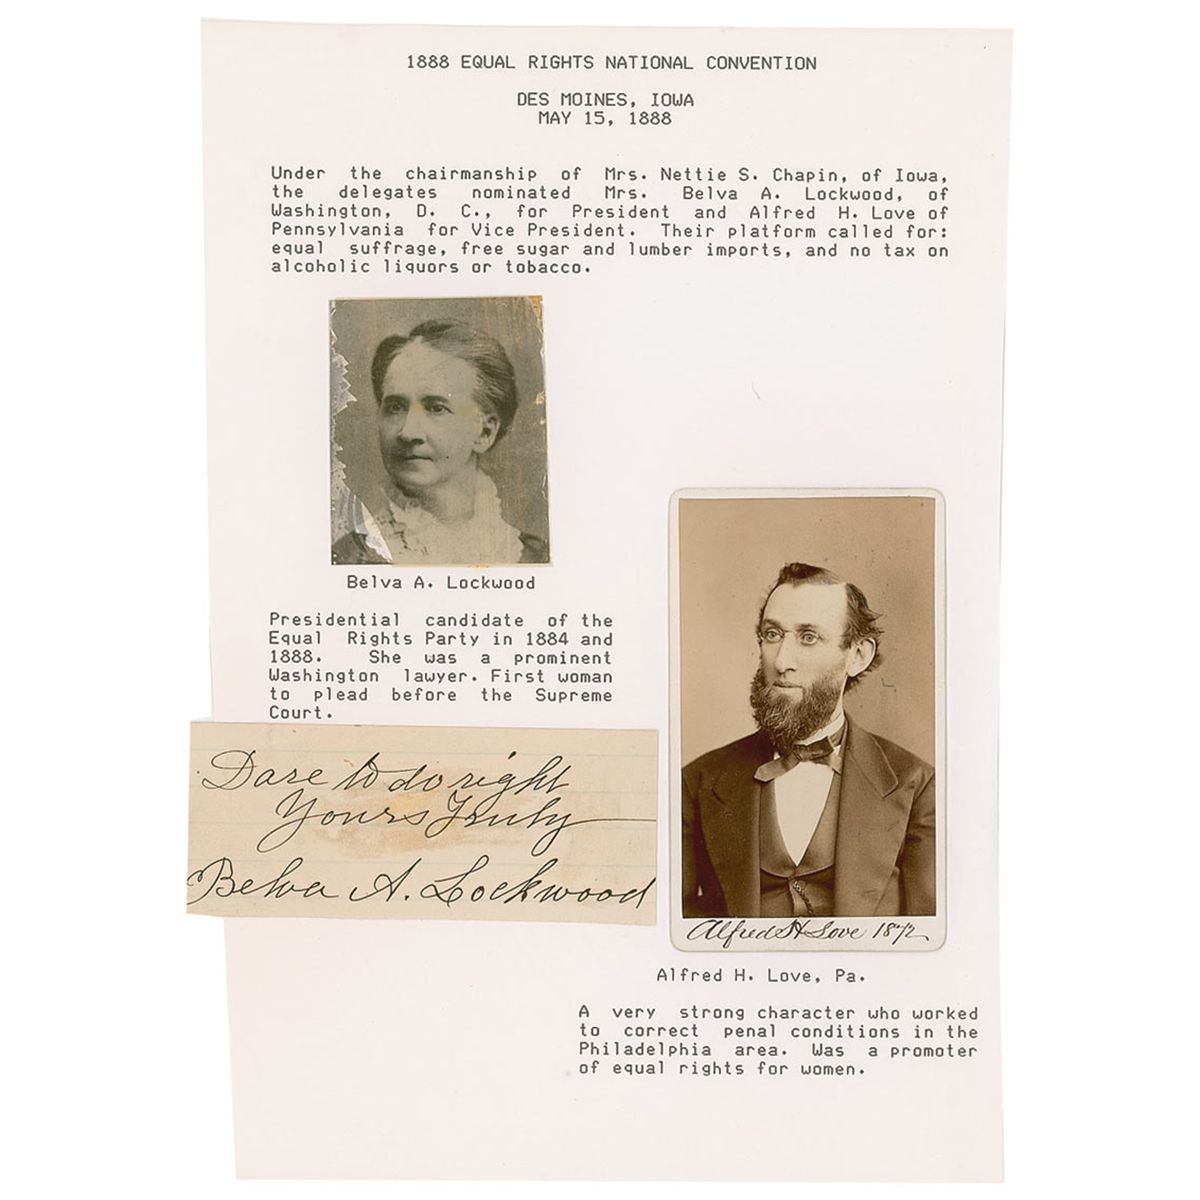 1888 EQUAL RIGHTS NATIONAL CONVENTION
DES MOINES, IOWA
MAY 15, 1888
Under the chairmanship of Mrs. Nettie S. Chapin, of Iowa,
the delegates nominated Mrs. Belva A. Lockwood, of
Washington, D. C., for President and Alfred H. Love of
Pennsylvania for Vice President. Their platform called for:
equal suffrage, free sugar and lumber imports, and no tax on
alcoholic liquors or tobacco.
Belva A. Lockwood
Presidential candidate of the
Equal Rights Party in 1884 and
1888. She was a prominent
Washington lawyer. First woman
to plead before the Supreme
Court.
Dare to do right
Yours Truly
Belva A. Lockwood
Alfred H Love 1872
Alfred H. Love, Pa.
A very strong character who worked
to correct penal conditions in the
Philadelphia area. Was a promoter
of equal rights for women.